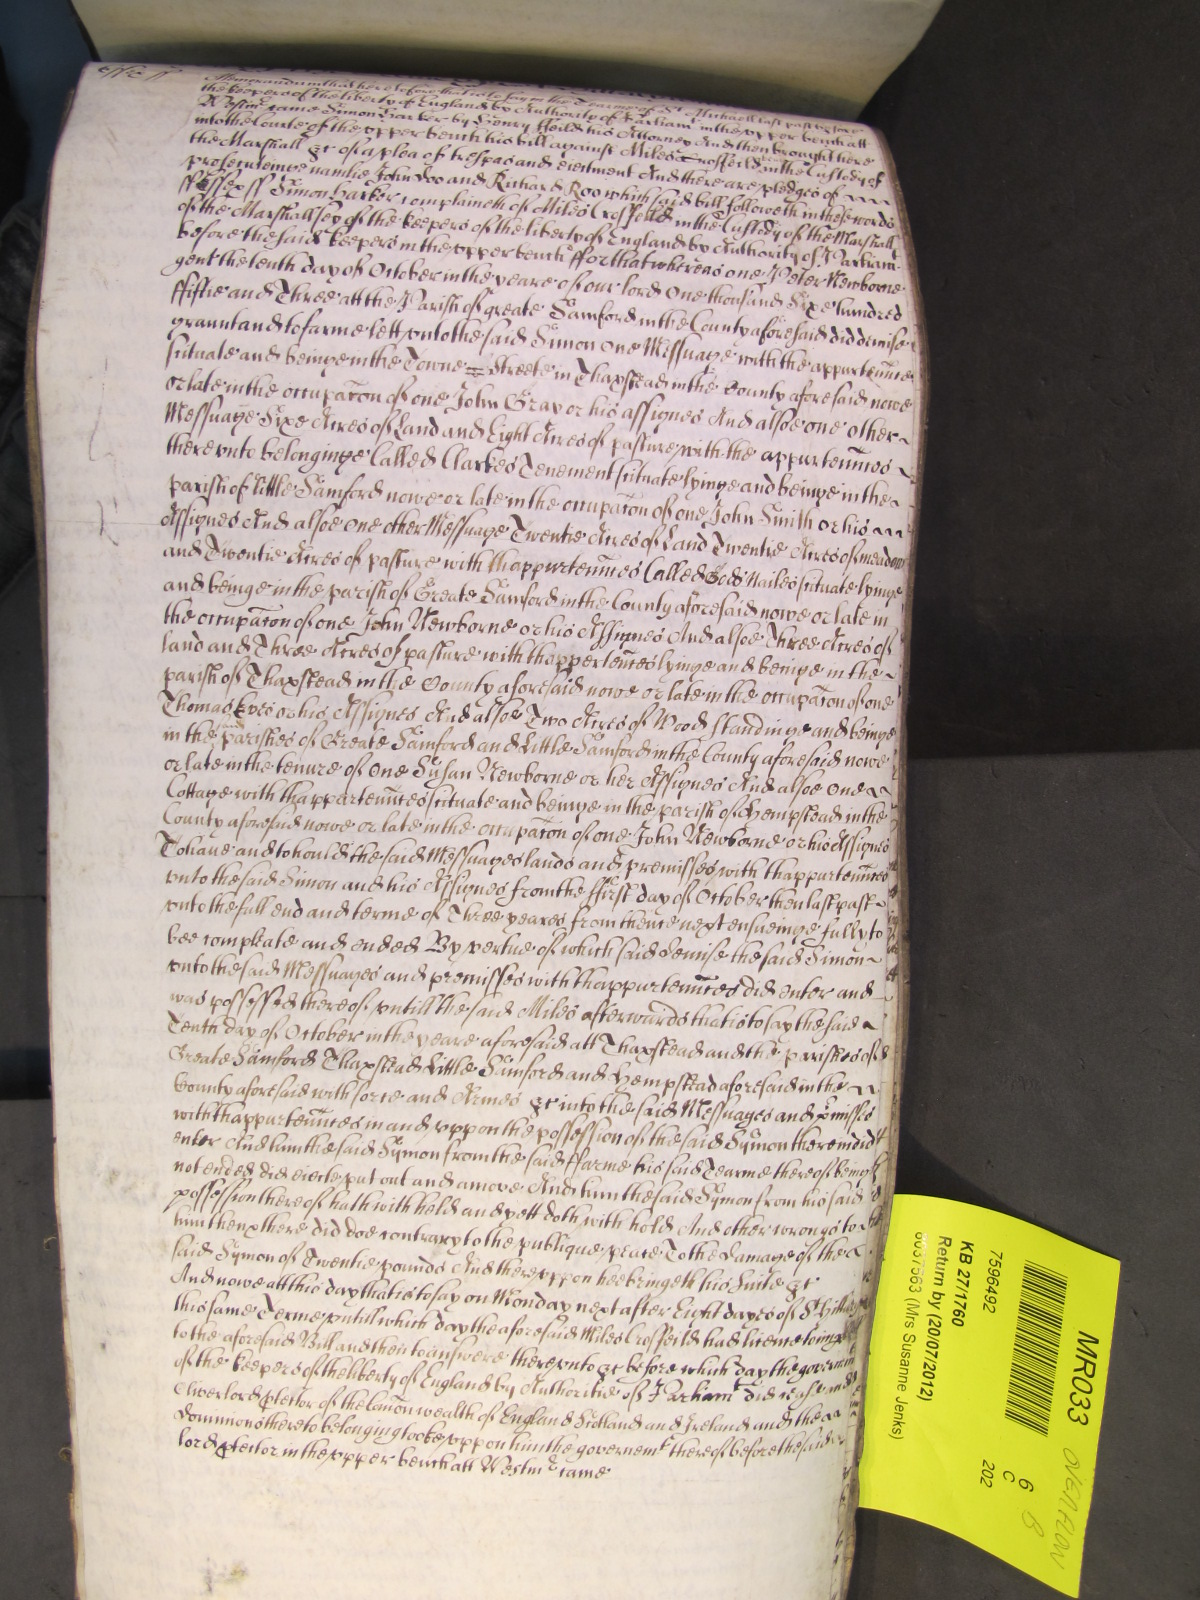 Essex ss
Memorandum that heretofore that is to say in the Tearme of St. Michaell last past before
the keepers of the liberty of England by Authority of Parliamt in the upper bench att
Westmr came Simon Harker by Henry Heild his Attorney And then brought here
into the Courte of the upper bench his bill against Miles Crosfeild in the Custody of
the Marshall &c of a plea of trespas and eiectment And there are pledges of
prosecuteinge namlie John Doo and Richard Roo which said bill followeth in these words
Essex ss Simon Harker complaineth of Miles Crosfeild in the Custody of the Marshall
of the Marshallsey of the keepers of the liberty of England by Authority of Parliam
before the said keepers in the upper bench ffor that whereas one Peter Newborne
gent the tenth day of October in the yeare of our lord One thousand Sixe hundred
ffiftie and Three att the Parish of greate Samford in the County aforesaid did demise
graunt and to farme lett unto the said Simon One Messuage with the appurtennces
situate and beinge in the Towne Streete in Thaxstead in the County aforesaid nowe
or late in the occupacon of one John Gray or his assignes And alsoe one other
Messuage Sixe Acres of Land and Eight Acres of pasture with the appurtennces
thereunto belonginge Called Clarkes Tenement situate lyinge and beinge in the
parish of little Samford nowe or late in the occupacon of one John Smith or his
Assignes And alsoe One other Messuage Twentie Acres of Land Twentie Acres of meadow
and Twentie Acres of pasture with thappurtennces Called situate lyinge
and beinge in the parish of Greate Samford in the County aforesaid nowe or late in
the occupacon of one John Newborne or his Assignes And alsoe Three Acres of
land and Three Acres of pasture with thappertennces lyinge and beinge in the
parish of Thaxstead in the County aforesaid nowe or late in the occupacon of one
Thomas Eves or his Assignes And alsoe Two Acres of Wood standinge and beinge
in the parishes of Greate Samford and Little Samford in the County aforesaid nowe
or late in the tenure of One Susan Newborne or her Assignes And alsoe One
Cottage with thappurtennces situate and beinge in the parish of Hempstead in the
County aforesaid nowe or late in the occupacon of one John Newborne or his Assignes
To have and to hould the said Messuages lands and premisses with thappurtennces
unto the said Simon and his Assignes from the ffirst day of October then last past
unto the full end and terme of Three yeares from thence next ensueinge fully to
bee compleate and ended By vertue of which said demise the said Simon
unto the said Messuages and premisses with thappurtennces did enter and
was possessed thereof untill the said Miles afterwards that is to say the said
Tenth day of October in the yeare aforesaid att Thaxstead and the parishes of
Greate Samford Thaxstead Little Samford and Hempstead aforesaid in the
County aforesaid with force and Armes &c into the said Messuages and pmisses
with thappurtennces in and uppon the possession of the said Symon therein did
enter And him the said Symon from the said ffarme his said Tearme thereof being
not ended did eiecte put out and amove And him the said Symon from his said
possession thereof hath with held and yett doth with hold And other wrongs to
him then & there did doe contrary to the publique peace To the damage of the
said Symon of Twentie pounds And thereuppon hee bringeth his Suite &c
And nowe att this day that is to say on Monday next after Eight dayes of St Hillary
this same Terme untill which day the aforesaid Miles Crosfeild had licence to imp
to the aforesaid Bill and then to answere thereunto &c before which day the governmt
of the keepers of the liberty of England by Authoritie of Parliamt did cease and
Oliver lord ptector of the Comon wealth of England Scotland and Ireland and the
dominions thereto belonging tooke uppon him the governemt thereof before the said
lord ptector in the upper bench att Westmr came
MR033
OVERFLOW
7596492
6
C
202
8
KB 27/1760
Return by (20/07/2012)
(Mrs Susanne Jenks)